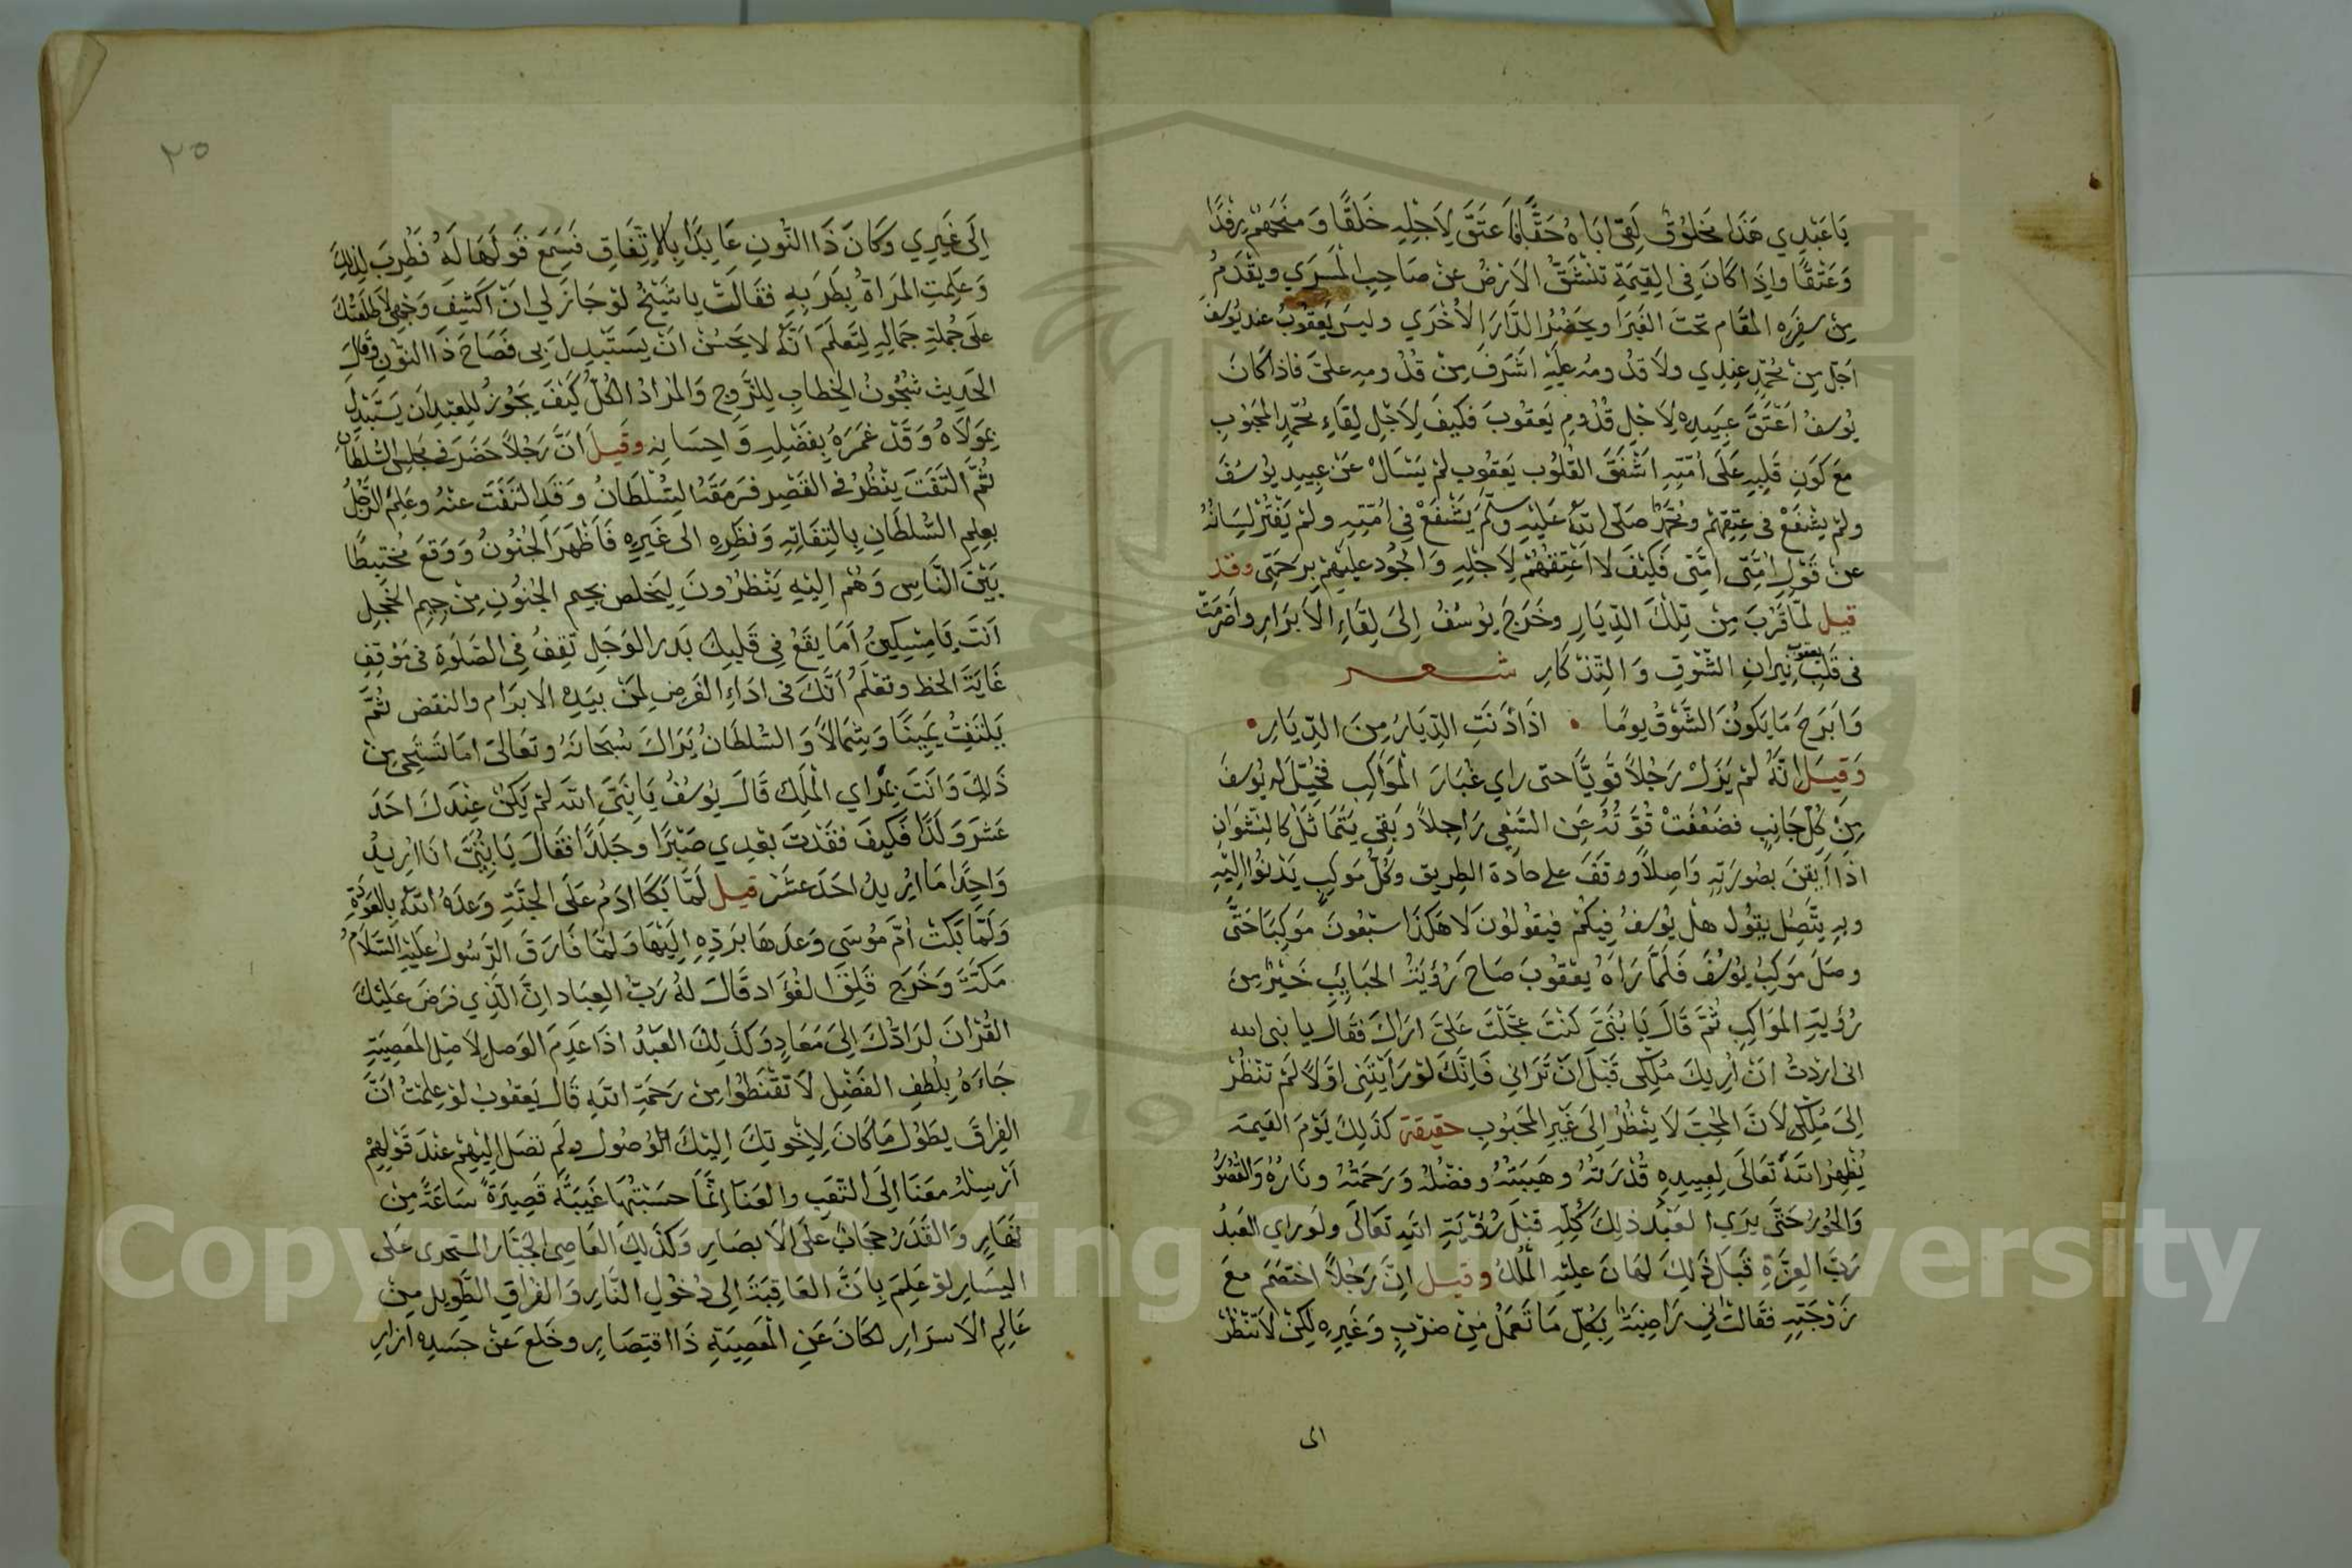 يَا عَبْدِي هَذَا مَخلُوقٌ لَقِيَ ابَاهُ حَقًّا فَاَعتَقَ لِاَجْلِهِ خَلقًا وَمنَحَهُمْ رِفْدًا
وَعَتْقًا وإِذَا كَانَ فِي القِيمَةِ تنْشَقُّ الاَرْضُ عنْ صَاحِبِ المَسرَي ويقْدَمُ
مِن سفَرِه المقَام تحتَ الغَبرَا ويحَضُرُ الدَّارَ الاُخْرَي وليسَ يَعقُوبُ عند يُوسفَ
اجَلّ مِنْ مُحمّدٍ عِندِي ولاَ قدُومُه عليَهِ اشَرفَ مِن قدُومِهِ عليّ فاذا كَانَ
يُوسفُ اَعْتَقَ عَبِيدهُ لِاَجْلِ قُدُومِ يَعقوبَ فكَيفَ لِاَجْلِ لِقَاءِ مُحمّدٍ المحَبوُبِ
معَ كَونِ قَلبِهِ عَلَى اُمّتِهِ اشْفَقَ القُلوُب يَعقوُب لمْ يسْالْ عنْ عبِيدِ يوُسُفَ
ولمْ يشْفَعْ فى عِتِقِهمْ ومُحمّدٌ صَلّى اللهُ عَليْهِ وسَلّمَ يَشْفَعْ فِي اُمّتِهِ ولمْ يَفْتُرْ لِسَانُهُ
عنْ قَوْلِ اُمَّتِى اُمَّتِى فَكَيْفَ لا اَعْتِقُهُمْ لِاَجْلِهِ وَاَجُود عليْهِمْ بِرَحْمَتِى وقد
قيل لمّا قرُبَ مِنْ تِلْكَ الدِّيَارِ وخَرَجَ يوُسفُ اِلىَ لِقَاءِ الاَبرَارِ واضْرِمَت
فى قَلبِ يعقوب نِيرانِ الشّوْقِ وَالتِذكَارِ شعر
وَابَرحَ مَا يَكوُنُ الشّوْقُ يومًا • اذَا دَنَتِ الدّيَارُ مِنَ الدّيَارِ •
وَقيَل اِنّهُ لمْ يَزلْ رَجُلاً قَويًّا حتى راي غُبَارَ الْمَوَاكِبِ فخُيّلَ لهُ يُوسفَ
مِنْ كُلّ جَانِبٍ فضَعُفَتْ قُوّتُهُ عَنِ السَّعْى رَاجِلاً وبَقِى يَتَمَاثَل كالنشْوَانِ
اذَا اَيْقنَ بصُورَتِهِ وَاصِلاً ووقفَ على جادة الطريق وكُلُّ مَوكبٍ يَدْنُوا اِليْهِ
وبهِ يتَّصِل يقوُل هلْ يُوسفُ فِيكُمْ فيَقولوُن لاَ هَكذَا سَبْعُونَ مَوكبًا حَتّى
وصَلَ مَوكبُ يوُسُفَ فَلَمّا رَاهُ يعْقوُبَ صَاحَ رُؤيَتُ الحبَايِبِ خَيْرٌ مِن
رُؤيَةِ المَوَاكِبِ ثُمّ قَالَ يَا بُنَيّ كنْتَ عجّلْتَ عَليَّ ارَاكَ فقَالَ يا نبى الله
انى ارَدْتُ اَنْ اُرِيكَ مُلْكِى قَبْلَ انْ تَرَانِي فَاِنّكَ لوْ رَاَيْتَنِى اوّلاً لمْ تنْظُرْ
اِلىَ مُلْكِى لاَنَّ المحُِبّ لاَ ينْظُرْ اِلىَ غَيْرِ المَحبُوبِ حقيقة كذَلِكَ يَوْمَ القيمَة
يُظِهرُ اللهُ تَعَالَى لِعبيدِهِ قُدْرَتَهُ وهَيبَتَهُ وفضْلَهُ وَرَحمَتَهُ ونَارَهُ وَالقُصُورُ
وَالحُورُ حَتَّى يرَي العَبْدُ ذلِكَ كُلّهِ قبْلَ رُؤْيَةِ اللهِ تعَالَى ولوَ راي العَبدُ
رَبّ العِزَّةِ قبَل ذَلِكَ لهَانَ عليْهِ المُلْكُ وقيل اِنّ رَجُلاً اختصَمَ معَ
زَوْجَتِهِ فقَالتْ اِنِي رَاضِيَةٌ بِكُلِّ مَا تَعَملُ مِنْ ضَرْبٍ وَغَيرِهِ لَكِنْ لاَ تنْظُرْ
الى
٢٥
اِلَى غَيْرِي وَكَانَ ذَا النّونِ عَابِدًا بِالاِتِّفَاقِ فسَمِعَ قَولَهَا لَهُ فطَرِبَ لِذلِكَ
وَعَلِمَتِ المَراةُ بِطَرَبِهِ فقَالتْ يا شَيْخُ لوْ جَازَ لي انْ اكْشِف وَجْهِى لاَطلَعْتُكَ
علَى جُملةِ جَمَالِهِ لِتَعلَمَ انّهُ لا يَحسُنْ انْ يسَتَبْدِلَ بى فصَاحَ ذَا النوْنِ وقَالَ
الحَدِيث شُجُونُ الخِطابِ لِلزَّوجِ وَالمرَادُ الكُلّ كَيْفَ يجُوزُ للِعبْدِ ان يَستَبْدِلَ
بِموَلَاهُ وَقَدْ غمَرَهُ بِفَضْلِهِ وَاحِسَانِه وقيلَ انّ رَجُلاً حَضَرَ فى مجَلسِ السُّلطَانِ
ثُمَّ التَفَتَ ينْظُرُ فى القَصْرِ فرَمَقَهُ السُّلطَانُ وَقَدِ التَفَتَ عنْهُ وعَلِمَ الرّجُلُ
بعِلِم السُّلطَانِ بِالتِفَاتِهِ وَنَظَرِهِ الى غَيرِهِ فَاَظْهَرَ الجُنُونُ وَوَقعَ مُختبِطًا
بَيْنَ النَّاسِ وَهُمْ اِليْهِ يَنْظُرُونَ لِيَخلص بجيم الجُنوُنِ مِنْ جِيمِ الخجلِ
اَنتَ يَا مِسْكِينُ اَمَا يقَعْ فِى قَلبِكَ بَدر الوَجَلِ تقِفُ فِى الصَّلَوةِ فى مَوْقِفِ
غَايَةَ الحظ وتعْلَمُ اَنَّكَ فى ادَاءِ الفَرضِ لِمَنْ بيَدِهِ الابرَام والنقض ثُمّ
يَلتَفِتُ يمِينًا وَشِمَالاً وَالسُّلطَانُ يَرَاكَ سُبحَانَهُ وتعَالىَ امَا تَستَحِى مِنْ
ذَلِكَ وَاَنتَ بمَراي الْملِكِ قَالَ يُوسفُ يَا نَبىَّ الله لمْ يَكُنْ عِنْدَكَ احَدَ
عَشرَ وَلَدًا فَكَيفَ فقَدْتَ بعْدِي صَبْرًا وجَلَدًا فقَالَ يَا بُنَيَّ انَا ارِيدُ
وَاحِدًا مَا ارِيدُ احَدَ عشَرْ قيل لَمَّا بَكَا ادَمُ عَلىَ الجَنَّةِ وعَدَهُ اللهُ بِالعَودَةِ
وَلَمّا بَكَتْ اُمّ مُوسَى وَعدَهَا بِرَدِّهِ اِليْهَا وَلَمّا فَارَقَ الرّسُولُ عَليْهِ السَّلاَمُ
مَكّةَ وَخَرَج قلِقَ الفُؤاد قَالَ لَهُ رَبّ العِبَاد اِنَّ الّذِي فرَضَ عَليْكَ
القُرْانَ لرَادُّكَ اِلىَ مَعَادٍ وَكَذَلِكَ العَبْدُ اذَا عَدِمَ الوَصلِ لِاَجْلِ المعَصِيَةِ
جَاءَهُ بِلُطفِ الفَضْلِ لاَ تقْنَطُوا مِنْ رَحمَةِ اللهِ قَالَ يَعقوُبُ لوْ عَلِمْتُ انَّ
الفِرَاقَ يطَوُل مَا كَانَ لِاِخْوتِكَ اِليْكَ الوُصُول ولمَ نصَل اِليْهِمْ عنْدَ قَوْلِهِمْ
اَرْسِلْهُ معَنَا اِلَى التّعَبِ والعَنَا اِنّمَا حسَبْتُهَا غَيبَةً قَصِيرَةً سَاعَةً مِنْ
نَهَارٍ وَالقَدَرُ حجَابٌ عَلىَ الاَبصَارِ وَكذَلِكَ العَاصِى الجبّار المتحدى على
اليسَارِ لوْ عَلِمَ بِانَّ العَاقِبَةَ اِلى دُخُولِ النَّارِ وَالفرَاقِ الطَّوِيل مِنْ
عَالِمِ الاَسرَارِ لكَانَ عَنِ المعَصِيَةِ ذَا اقتِصَارٍ وخَلعَ عَنْ جسَدِهِ ازار
Copyright © King Saud University